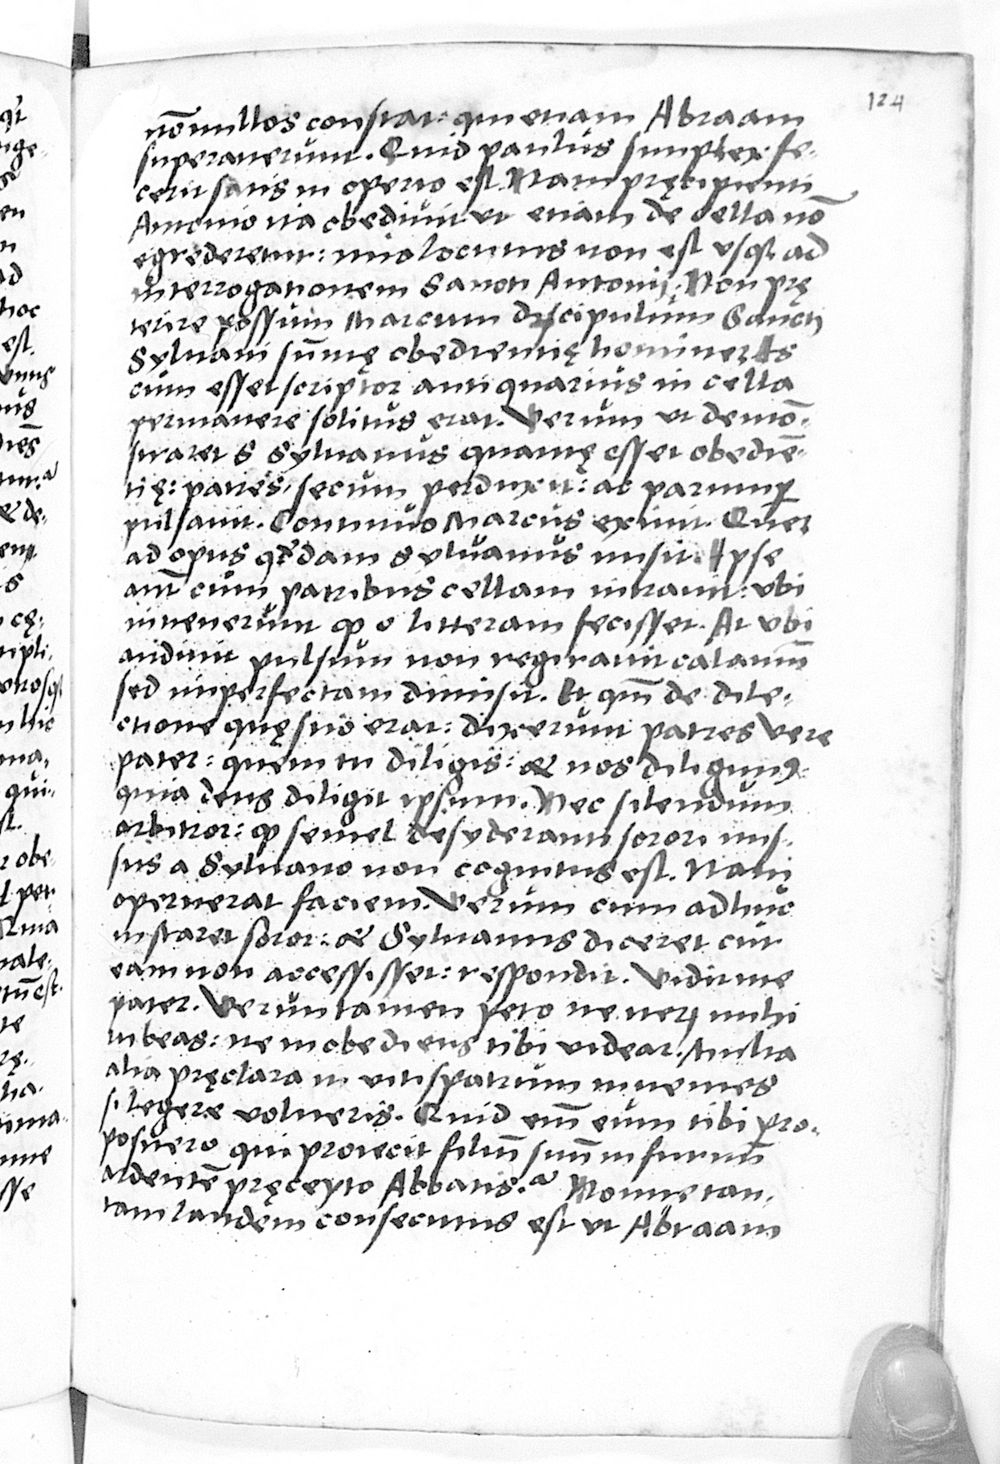 124
nō nullos constat: qui etiam Abraam
superauerunt. Quid paulus simplex fe-
cerit satis in operto est. Nam pręcipienti
Antonio ita obediuit ut etiam de cella nō
egrederetur: imo locutus non est usqȝ ad
interrogationem Sancti Antonij. Non prę
terire possum Marcum discipulum Sancti
Syluani sūmę obedientię hominem. Is
cum esset scriptor antiquarius in cella
permanere solitus erat. Verum ut demō-
straret S Syluanus quantę esset obediē-
tię: patres secum perduxit: ac parumꝑ
pulsauit. Continuo Marcus exiuit. Quem
ad opus qddam Syluanus misit. Ipse
aūt cum patribus cellam intrauit: ubi
inuenerunt ꝙ o litteram fecisset. At ubi
audiuit pulsum non regirauit calamū
sed imperfectam dimisit. Et qm̄ de dile-
ctione quę suo erat: dixerunt patres Vere
pater: quem tu diligis: & nos diligimus
quia deus diligit ipsum. Nec silendum
arbitror: ꝙ semel desyderanti sorori mis-
sus a Syluano non cognitus est. Nam
operuerat faciem. Verum cum adhuc
instaret soror: & Syluanus diceret cur
eam non accessisset: respondit. Vidit me
pater. Veruntamen peto ne iterȝ mihi
iubeas: ne inobediens tibi videar. Multa
alia pręclara in vitis patrum inuenies
si legere volueris. Quid em̄ eum tibi pro-
posuero qui proiecit filiū suū in furnū
ardentē pręcepto Abbatis? Nonne tan-
tam laudem consecutus est ut Abraam